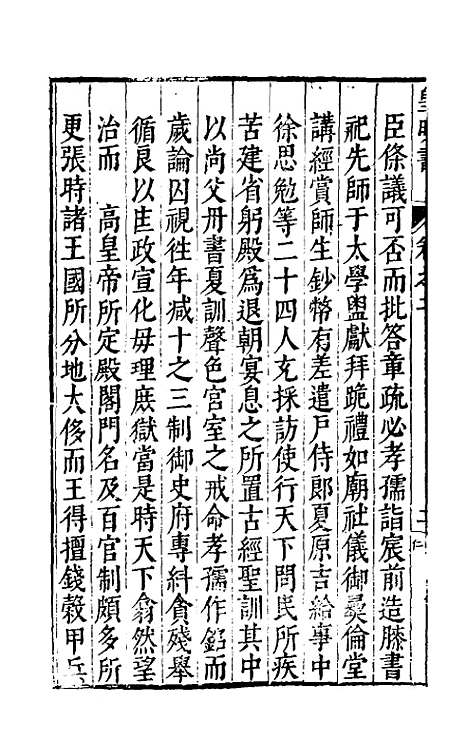 臣條議可否而批答章疏必孝孺詣宸前造膝書
祀先師于太學盥獻拜跪禮如廟社儀御彞倫堂
講經賞師生鈔幣有差遣戶侍郎夏原吉給事中
徐思勉等二十四人充採訪使行天下問民所疾
苦建省躬殿爲退朝宴息之所置古經聖訓其中
以尚父丹書夏訓聲色宮室之戒命孝孺作銘而
歲論囚視徃年减十之三制御史府專糾貪殘舉
循良以匡政宣化毋理庶獄當是時天下翕然望
治而 高皇帝所定殿閣門名及百官制頗多所
更張時諸王國所分地大侈而王得擅錢穀甲兵